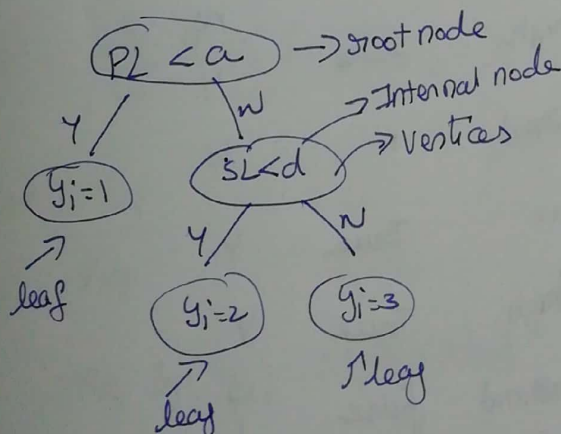 PL < a → root node
Y N → Internal node
→ Vertices
yi=1 SL<d
leaf Y N
yi=2 yi=3
leaf leaf